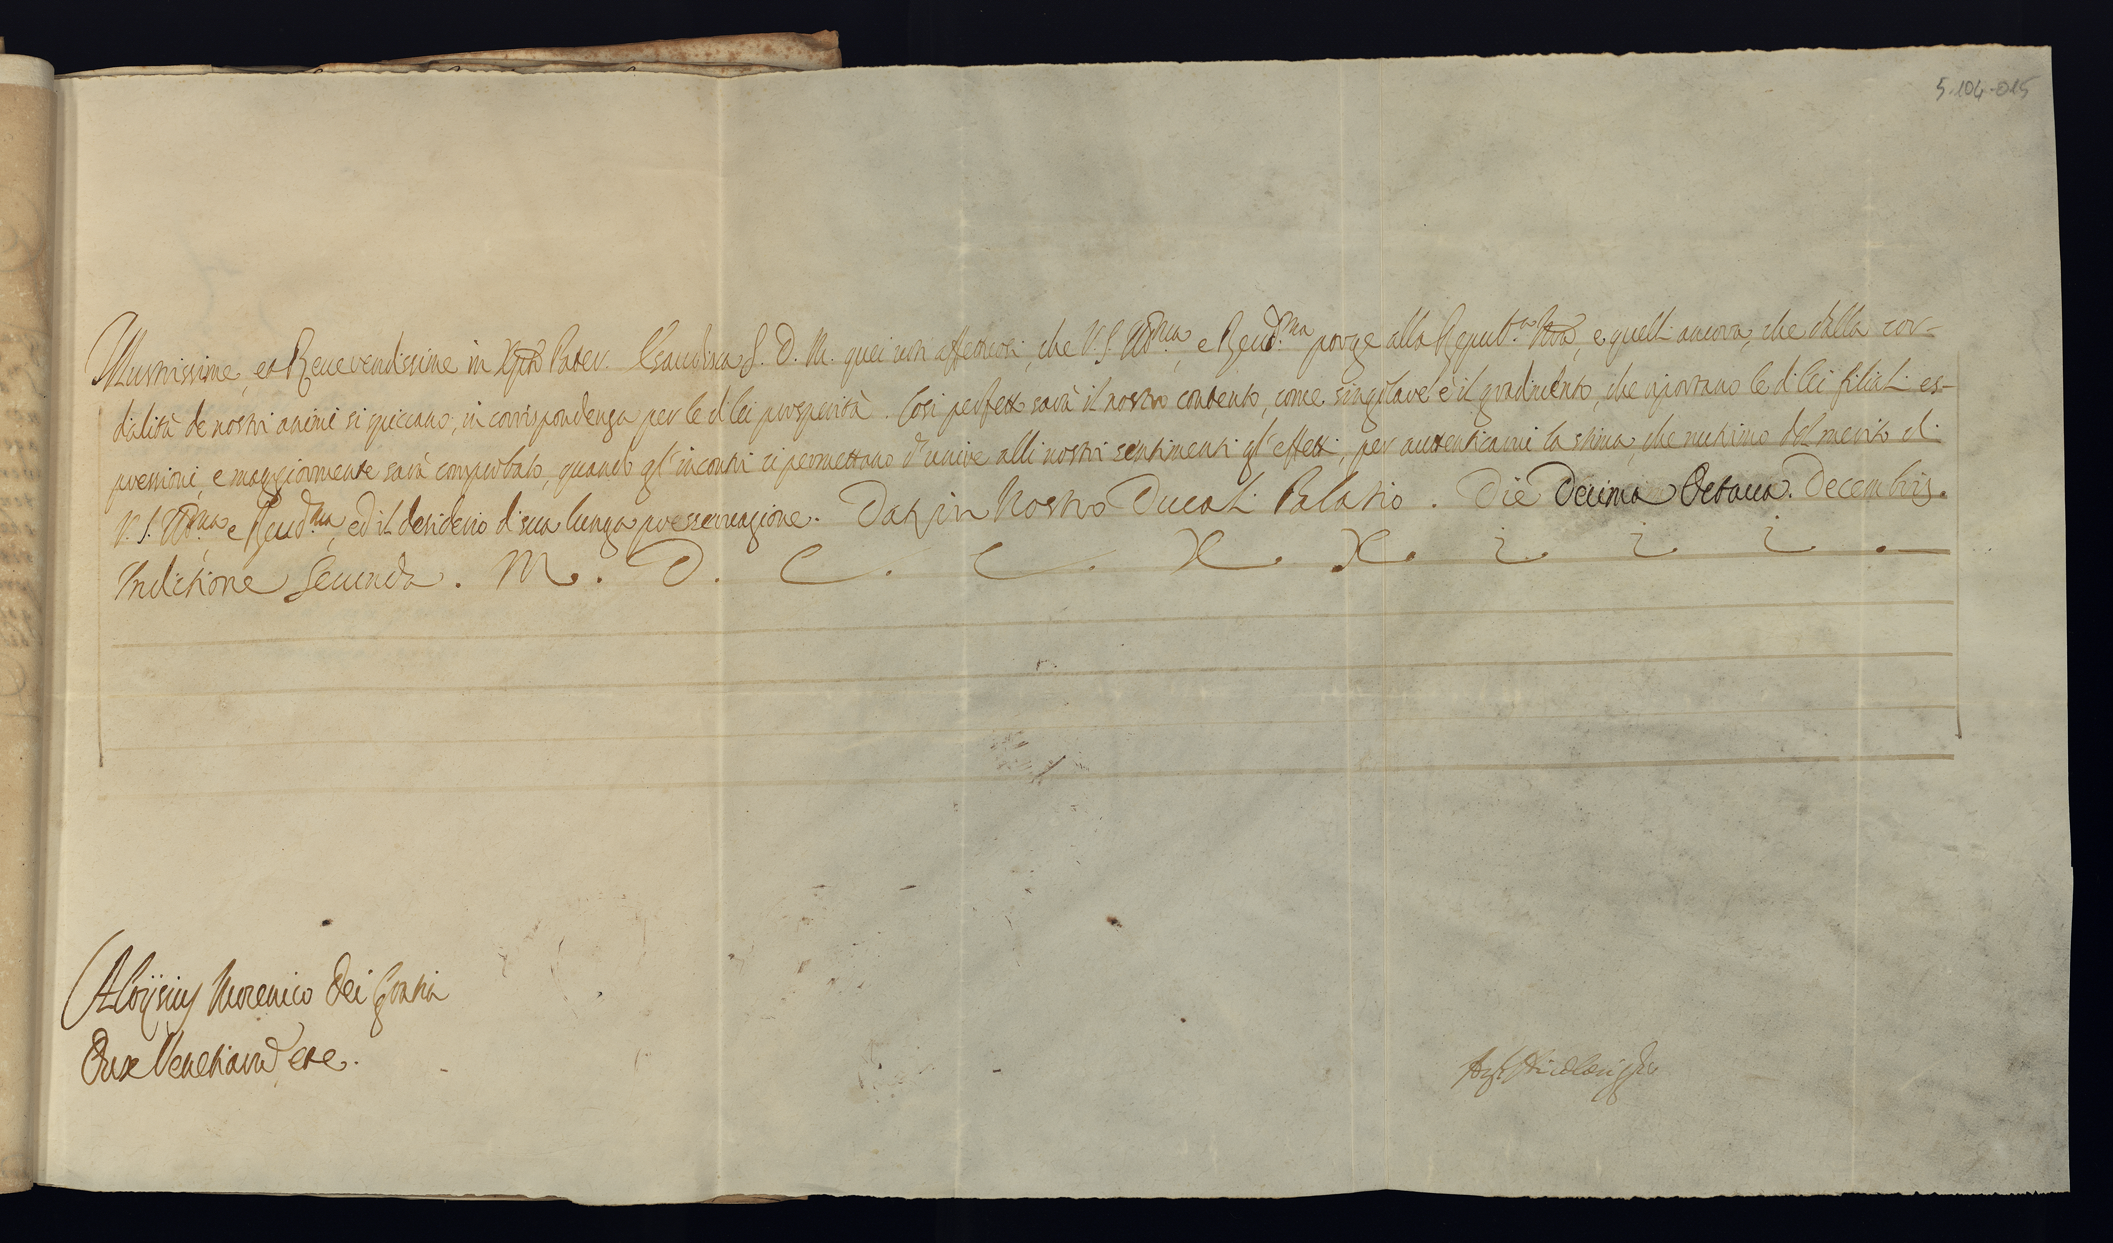 5-104-015
Illustrissime, et Reverendissime in Xpto Pater. Esaudisca S. D. M. quei voti affettuosi, che V. S. Illma, e Reudma porge alla Republa Nra, e quelli ancora, che dalla cor-
dialità de nostri animi si spiccano, in corrispondenza per le di lei prosperità. Così perfetto sarà il nostro contento, come singolare è il gradimento, che riportano le di lei filiali es-
pressioni, e maggiormente sarà comprobato, quando gl'incontri ci permettano d'unire alli nostri sentimenti gl'effetti, per autenticarui la stima, che nutrimo del merito di
V. S. Illma e Reudma, ed il desiderio di sua lunga preseruazione. Dat in Nostro Ducali Palatio. Die Decima Octaua. Decembris.
Inditione Secunda. M. D. C. C. X. X. i. i. i.
Aloysius Mocenico Dei Gratia
Dux Venetiarum etc.